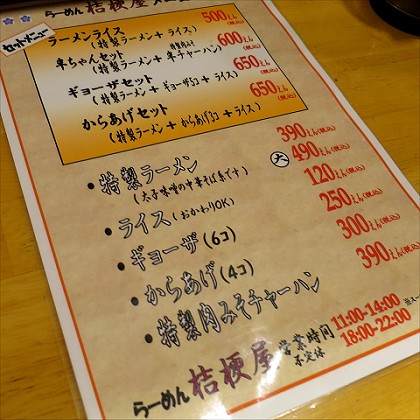 らーめん 桔梗屋
セットメニュー
ラーメンライス 500えん(税込)
(特製ラーメン+ライス)
半ちゃんセット 600えん(税込)
(特製ラーメン+特製肉みそ半チャーハン)
ギョーザセット 650えん(税込)
(特製ラーメン+ギョーザ3コ+ライス)
からあげセット 650えん(税込)
(特製ラーメン+からあげ3コ+ライス)
・特製ラーメン 390えん(税込)
(太子味噌の中華そば系です) 大 490えん(税込)
・ライス(おかわりOK) 120えん(税込)
・ギョーザ(6コ) 250えん(税込)
・からあげ(4コ) 300えん(税込)
・特製肉みそチャーハン 390えん(税込)
らーめん 桔梗屋 営業時間 11:00-14:00
不定休 18:00-22:00